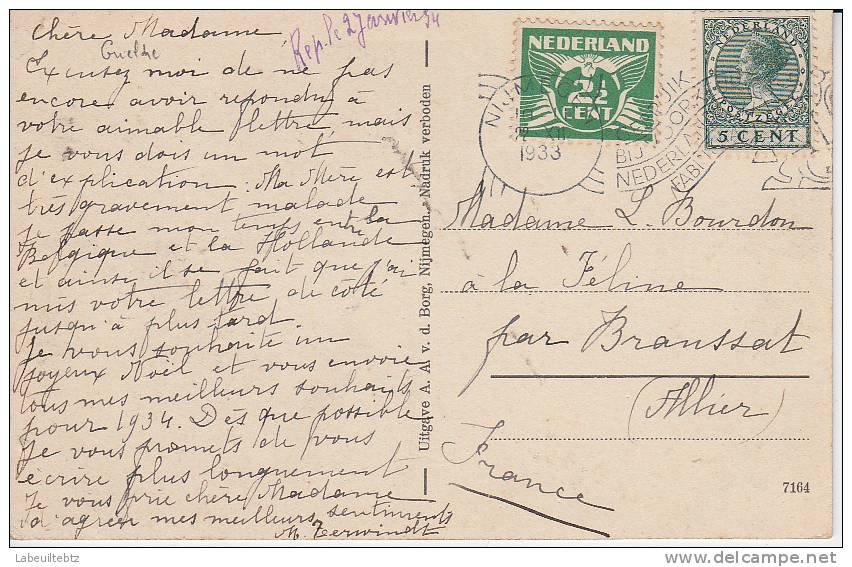 Chère Madame
Guelde
Rep. le 2 Janvier 34
Excusez moi de ne pas
encore avoir repondre à
votre aimable lettre, mais
je vous dois un mot
d'explication. Ma Mère est
très gravement malade
je passe mon temps entre la
Belgique et la Hollande
et ainsi il se fait que j'ai
mis votre lettre de coté
jusqu'à plus tard.
Je vous souhaite un
joyeux Noël et vous envoie
tous mes meilleurs souhaits
pour 1934. Dès que possible
je vous promets de vous
écrire plus longuement
Je vous prie chère Madame
d'agréer mes meilleurs sentiments
M. Terwindt
Uitgave A. Al v. d. Borg, Nijmegen. Nadruk verboden
NEDERLAND
2½
CENT
NEDERLAND
POSTZEGEL
5 CENT
NIJMEGEN
XII
1933
GEBRUIK
BIJ VOOR
NEDERLA
FABRI
Madame L. Bourdon
à la Féline
par Branssat
(Allier)
France
7164
Labeuitebtz
delcampe.net